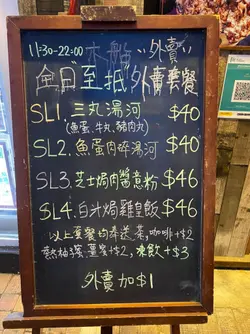 11:30-22:00 本船 "外賣"
全日"至抵"外賣套餐
SL1. 三丸湯河 $40
(魚蛋、牛丸、豬肉丸)
SL2. 魚蛋肉碎湯河 $40
SL3. 芝士焗肉醬意粉 $46
SL4. 白汁焗雞皇飯 $46
以上套餐均奉送茶,咖啡+$2
熱柚蜜、薑茶+$2, 凍飲+$3
外賣加$1